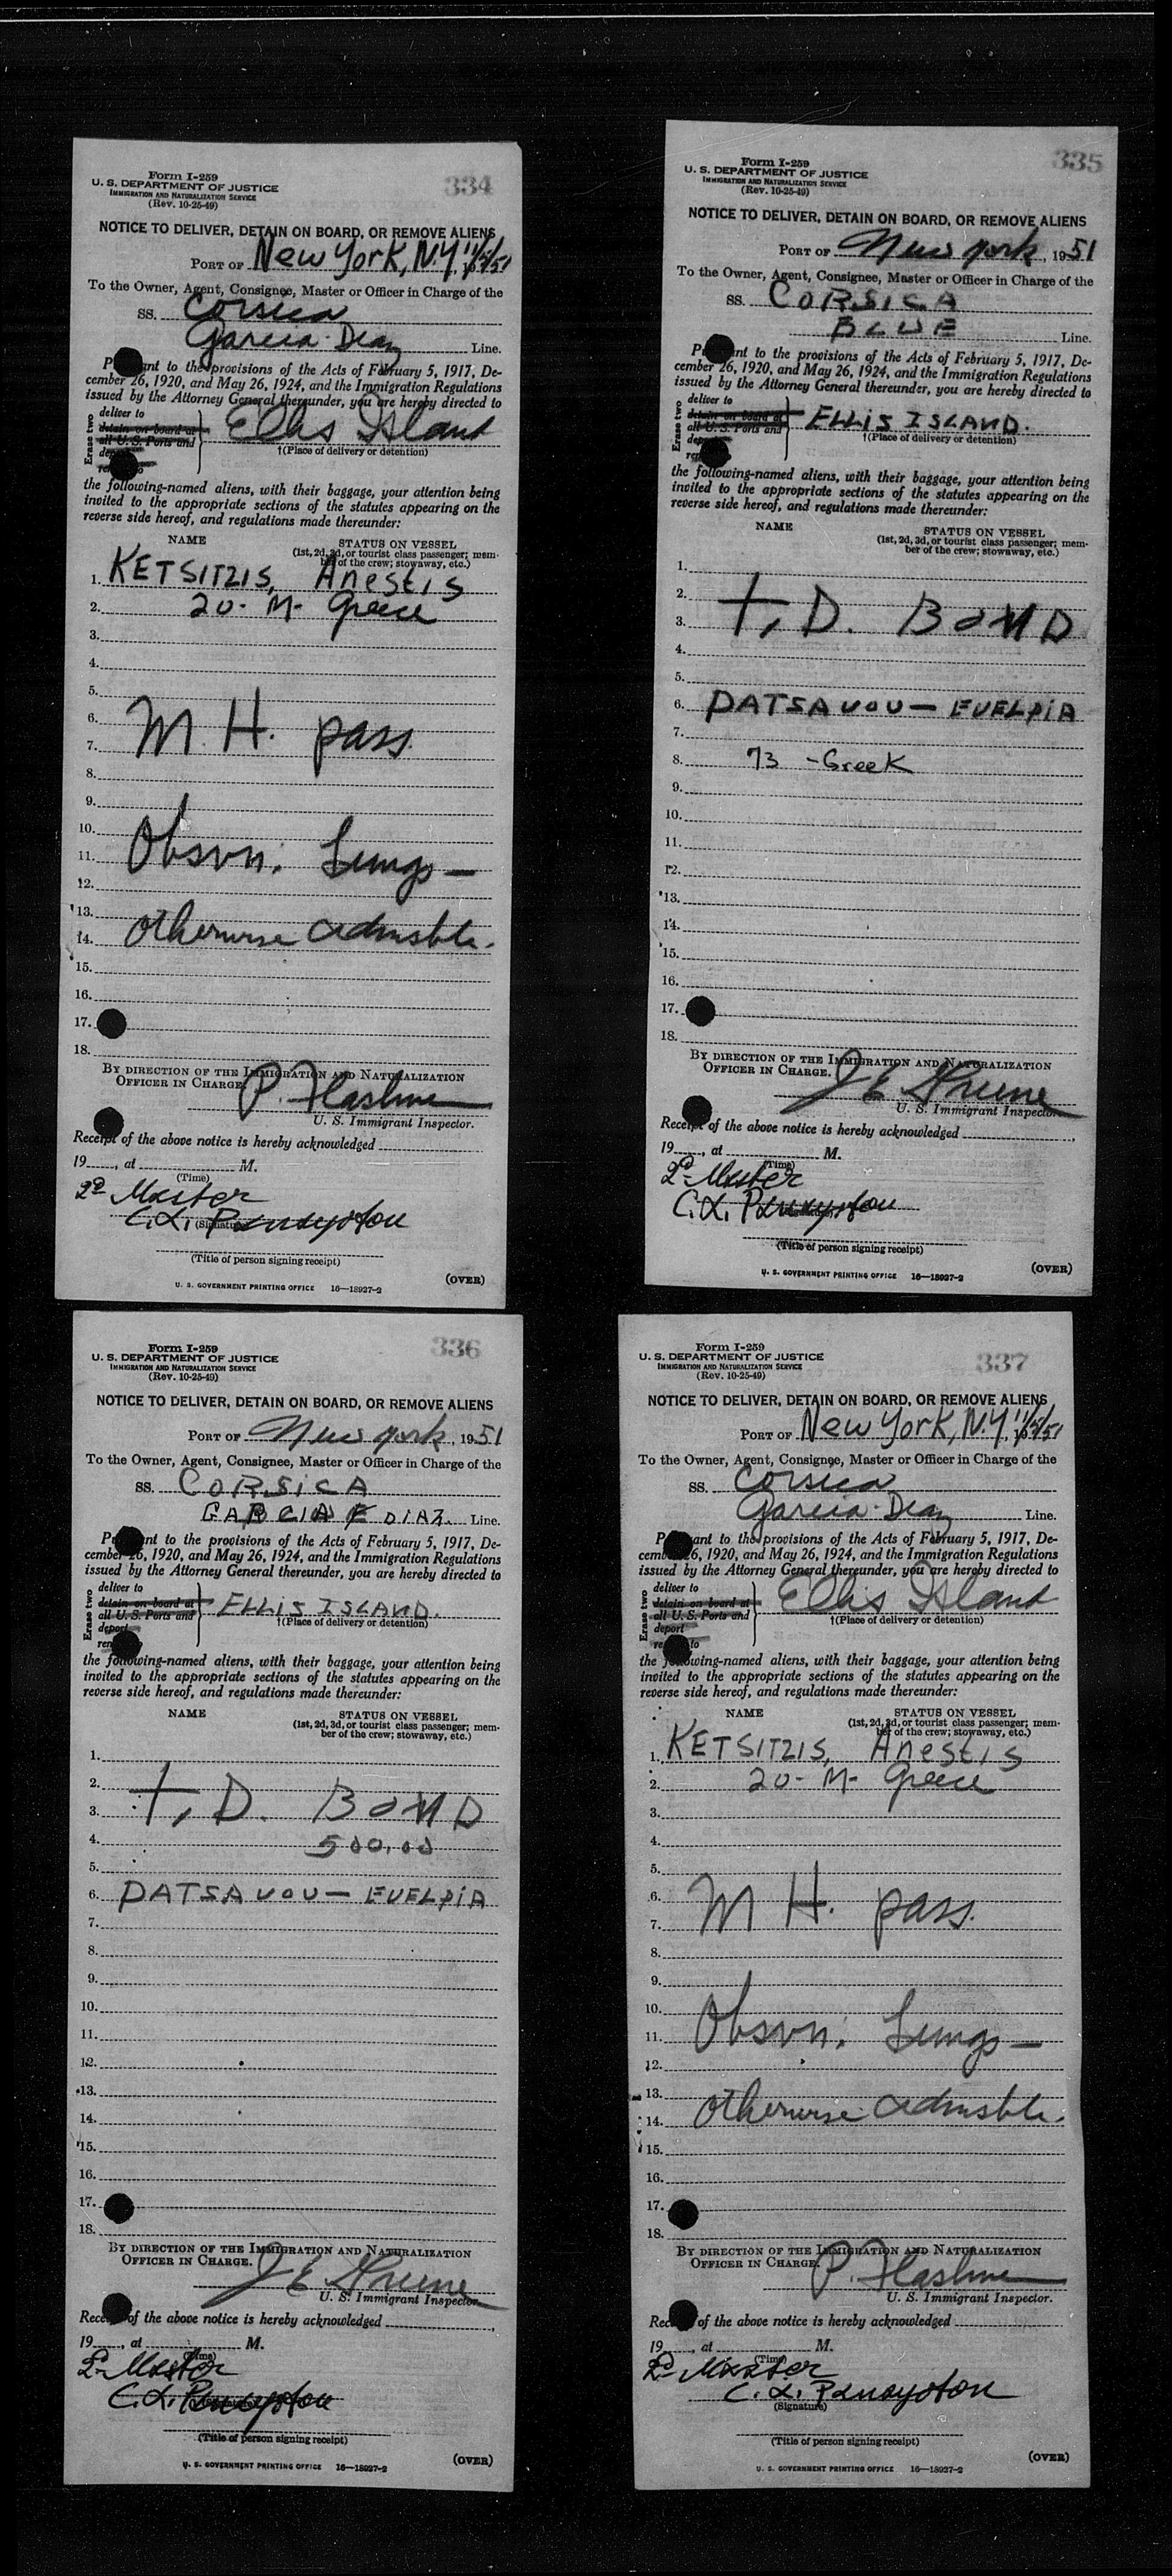 334
Form I-259
U. S. DEPARTMENT OF JUSTICE
IMMIGRATION AND NATURALIZATION SERVICE
(Rev. 10-25-49)
NOTICE TO DELIVER, DETAIN ON BOARD, OR REMOVE ALIENS
PORT OF New York, N.Y.
To the Owner, Agent, Consignee, Master or Officer in Charge of the
SS. Corsica
Garcia-Diaz Line.
to the provisions of the Acts of February 5, 1917, De-
cember 26, 1920, and May 26, 1924, and the Immigration Regulations
issued by the Attorney General thereunder, you are hereby directed to
Erase two
deliver to
detain on board at
all U. S. Ports and
Ellis Island
†(Place of delivery or detention)
the following-named aliens, with their baggage, your attention being
invited to the appropriate sections of the statutes appearing on the
reverse side hereof, and regulations made thereunder:
NAME STATUS ON VESSEL
(1st, 2d, 3d, or tourist class passenger; mem-
ber of the crew; stowaway, etc.)
1. KETSITZIS, Anestis
2. 20- M- Greece
3.
4.
5.
6.
7. M. H. pass.
8.
9.
10.
11. Obsvn. Lungs —
12.
13.
14. otherwise admsble.
15.
16.
17.
18.
BY DIRECTION OF THE IMMIGRATION AND NATURALIZATION
OFFICER IN CHARGE.
U. S. Immigrant Inspector.
Receipt of the above notice is hereby acknowledged
19___, at ___ M.
(Time)
Master
C. L.
(Signature)
(Title of person signing receipt)
U. S. GOVERNMENT PRINTING OFFICE 16—18927-2
(OVER)
335
Form I-259
U. S. DEPARTMENT OF JUSTICE
IMMIGRATION AND NATURALIZATION SERVICE
(Rev. 10-25-49)
NOTICE TO DELIVER, DETAIN ON BOARD, OR REMOVE ALIENS
PORT OF New York, 1951
To the Owner, Agent, Consignee, Master or Officer in Charge of the
SS. CORSICA
BLUE Line.
to the provisions of the Acts of February 5, 1917, De-
cember 26, 1920, and May 26, 1924, and the Immigration Regulations
issued by the Attorney General thereunder, you are hereby directed to
Erase two
deliver to
detain on board at
all U. S. Ports and
ELLIS ISLAND.
†(Place of delivery or detention)
the following-named aliens, with their baggage, your attention being
invited to the appropriate sections of the statutes appearing on the
reverse side hereof, and regulations made thereunder:
NAME STATUS ON VESSEL
(1st, 2d, 3d, or tourist class passenger; mem-
ber of the crew; stowaway, etc.)
1.
2.
3. T. D. BOND
4.
5.
6. PATSAVOU — EVELPIA
7.
8. 73 - Greek
9.
10.
11.
12.
13.
14.
15.
16.
17.
18.
BY DIRECTION OF THE IMMIGRATION AND NATURALIZATION
OFFICER IN CHARGE.
U. S. Immigrant Inspector.
Receipt of the above notice is hereby acknowledged
19___, at ___ M.
(Time)
Master
C. L.
(Title of person signing receipt)
U. S. GOVERNMENT PRINTING OFFICE 16—18927-2
(OVER)
336
Form I-259
U. S. DEPARTMENT OF JUSTICE
IMMIGRATION AND NATURALIZATION SERVICE
(Rev. 10-25-49)
NOTICE TO DELIVER, DETAIN ON BOARD, OR REMOVE ALIENS
PORT OF New York, 1951
To the Owner, Agent, Consignee, Master or Officer in Charge of the
SS. CORSICA
GARCIA & DIAZ. Line.
to the provisions of the Acts of February 5, 1917, De-
cember 26, 1920, and May 26, 1924, and the Immigration Regulations
issued by the Attorney General thereunder, you are hereby directed to
Erase two
deliver to
detain on board at
all U. S. Ports and
deport
ELLIS ISLAND.
†(Place of delivery or detention)
the following-named aliens, with their baggage, your attention being
invited to the appropriate sections of the statutes appearing on the
reverse side hereof, and regulations made thereunder:
NAME STATUS ON VESSEL
(1st, 2d, 3d, or tourist class passenger; mem-
ber of the crew; stowaway, etc.)
1.
2.
3. T. D. BOND
4. 500.00
5.
6. PATSAVOU — EVELPIA
7.
8.
9.
10.
11.
12.
13.
14.
15.
16.
17.
18.
BY DIRECTION OF THE IMMIGRATION AND NATURALIZATION
OFFICER IN CHARGE.
U. S. Immigrant Inspector.
of the above notice is hereby acknowledged
19___, at ___ M.
(Time)
Master
C. L.
(Title of person signing receipt)
U. S. GOVERNMENT PRINTING OFFICE 16—18927-2
(OVER)
337
Form I-259
U. S. DEPARTMENT OF JUSTICE
IMMIGRATION AND NATURALIZATION SERVICE
(Rev. 10-25-49)
NOTICE TO DELIVER, DETAIN ON BOARD, OR REMOVE ALIENS
PORT OF New York, N.Y.
To the Owner, Agent, Consignee, Master or Officer in Charge of the
SS. Corsica
Garcia-Diaz Line.
to the provisions of the Acts of February 5, 1917, De-
26, 1920, and May 26, 1924, and the Immigration Regulations
issued by the Attorney General thereunder, you are hereby directed to
Erase two
deliver to
detain on board at
all U. S. Ports and
deport
Ellis Island
†(Place of delivery or detention)
the following-named aliens, with their baggage, your attention being
invited to the appropriate sections of the statutes appearing on the
reverse side hereof, and regulations made thereunder:
NAME STATUS ON VESSEL
(1st, 2d, 3d, or tourist class passenger; mem-
ber of the crew; stowaway, etc.)
1. KETSITZIS, Anestis
2. 20- M- Greece
3.
4.
5.
6.
7. M H. pass.
8.
9.
10.
11. Obsvn. Lungs —
12.
13.
14. otherwise admsble.
15.
16.
17.
18.
BY DIRECTION OF THE IMMIGRATION AND NATURALIZATION
OFFICER IN CHARGE.
U. S. Immigrant Inspector.
of the above notice is hereby acknowledged
19___, at ___ M.
(Time)
Master
C. L.
(Signature)
(Title of person signing receipt)
U. S. GOVERNMENT PRINTING OFFICE 16—18927-2
(OVER)